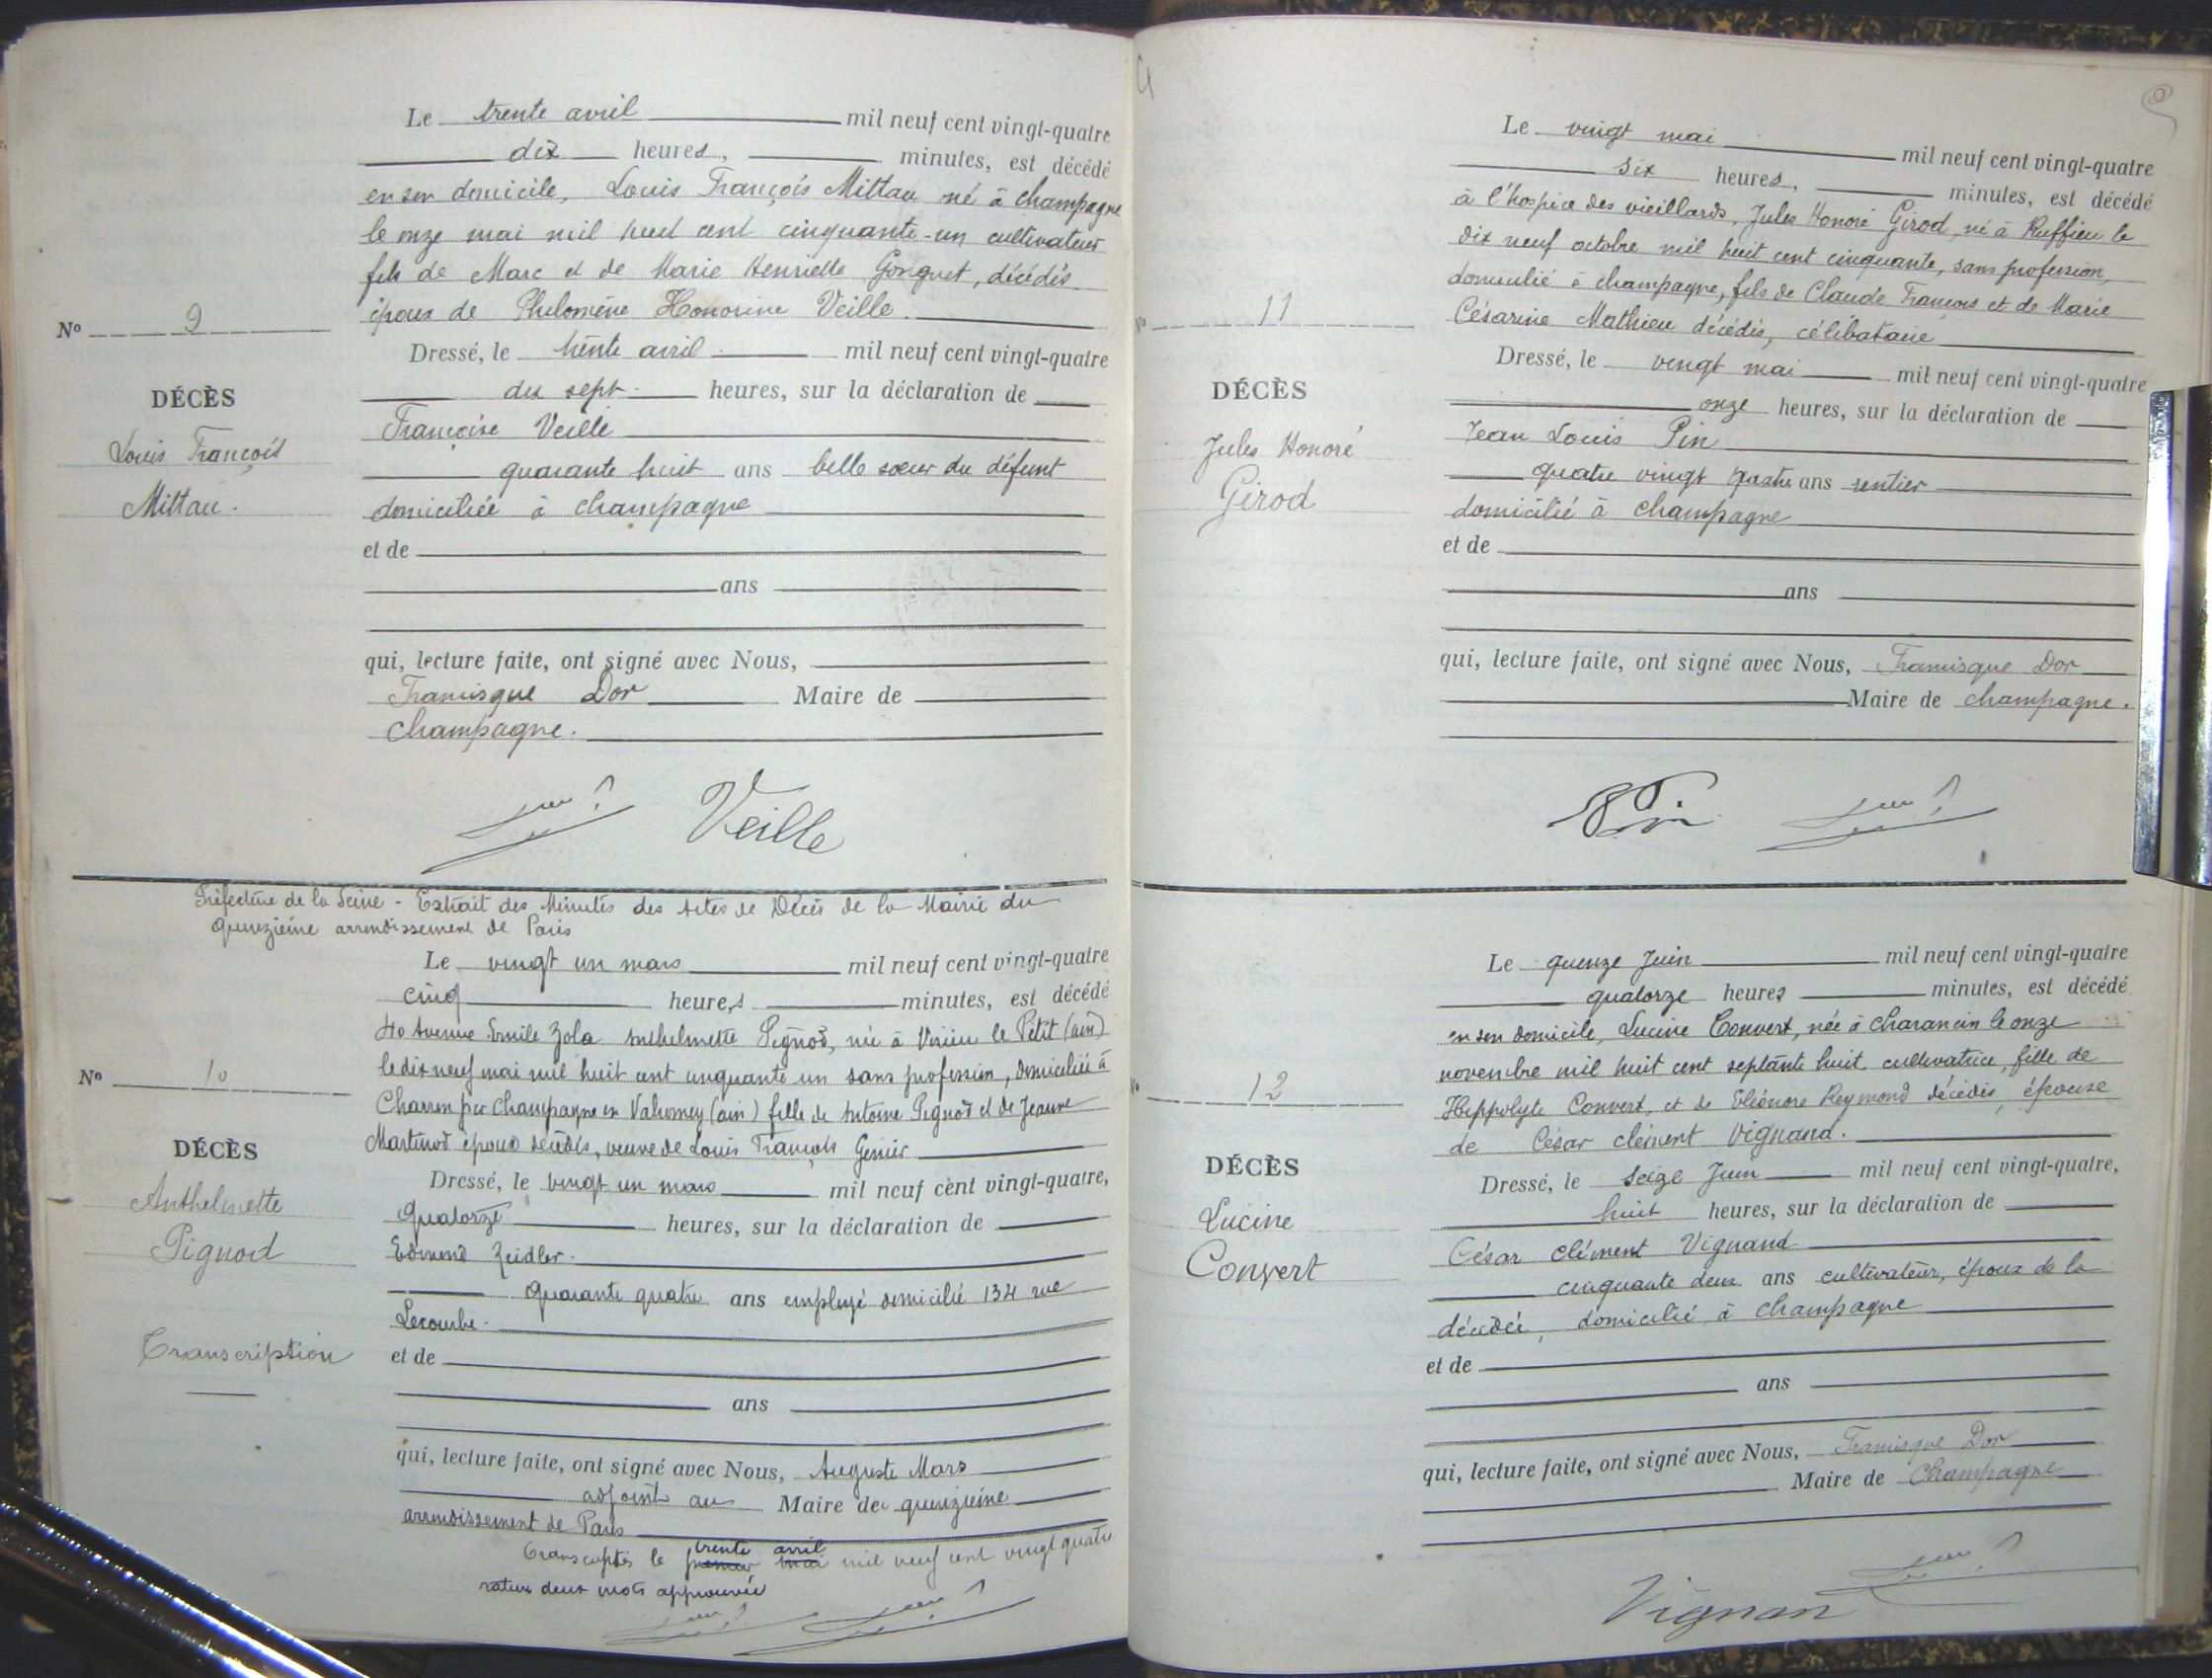 Le trente avril mil neuf cent vingt-quatre
dix heures, minutes, est décédé
en son domicile, Louis François Mittau né à Champagne
le onze mai mil huit cent cinquante-un cultivateur
fils de Marc et de Marie Henriette Gonguet, décédés
époux de Philomène Honorine Veille.
Nº 9
Dressé, le trente avril mil neuf cent vingt-quatre
DÉCÈS
dix sept heures, sur la déclaration de
Louis François
Françoise Veille
Mittau.
quarante huit ans belle sœur du défunt
domiciliée à Champagne
et de
ans
qui, lecture faite, ont signé avec Nous,
Francisque Dor Maire de
Champagne.
Veille
Préfecture de la Seine - Extrait des Minutes des Actes de Décès de la Mairie du
quinzième arrondissement de Paris
Le vingt un mars mil neuf cent vingt-quatre
cinq heures minutes, est décédé
40 Avenue Emile Zola Anthelmette Pignod, née à Virieu le Petit (ain)
le dix neuf mai mil huit cent cinquante un sans profession, domiciliée à
Nº 10
Charron par Champagne en Valromey (ain) fille de Antoine Pignod et de Jeanne
Martinod époux décédés, veuve de Louis François Genier
DÉCÈS
Dressé, le vingt un mars mil neuf cent vingt-quatre,
Anthelmette
quatorze heures, sur la déclaration de
Pignod
Edmond Zeidler.
quarante quatre ans employé domicilié 134 rue
Lecourbe.
Transcription
et de
ans
qui, lecture faite, ont signé avec Nous, Auguste Mars
adjoint au Maire du quinzième
arrondissement de Paris
trente avril
Transcriptés le premier mai mil neuf cent vingt quatre
rature deux mots approuvée
Le vingt mai mil neuf cent vingt-quatre
six heures, minutes, est décédé
à l'hospice des vieillards, Jules Honoré Girod, né à Ruffieu le
dix neuf octobre mil huit cent cinquante, sans profession,
domicilié à Champagne, fils de Claude François et de Marie
Nº 11
Césarine Mathieu décédés, célibataire
Dressé, le vingt mai mil neuf cent vingt-quatre
DÉCÈS
onze heures, sur la déclaration de
Jules Honoré
Jean Louis Pin
Girod
quatre vingt quatre ans rentier
domicilié à Champagne
et de
ans
qui, lecture faite, ont signé avec Nous, Francisque Dor
Maire de Champagne.
Pin
Le quinze Juin mil neuf cent vingt-quatre
quatorze heures minutes, est décédé
en son domicile, Lucine Convert, née à Charancin le onze
novembre mil huit cent septante huit cultivatrice, fille de
Nº 12
Hippolyte Convert, et de Eléonore Reymond décédés, épouse
de César clément Vignand.
DÉCÈS
Dressé, le seize Juin mil neuf cent vingt-quatre,
Lucine
huit heures, sur la déclaration de
Convert
César clément Vignand
cinquante deux ans cultivateur, époux de la
décédée, domicilié à Champagne
et de
ans
qui, lecture faite, ont signé avec Nous, Francisque Dor
Maire de Champagne
Vignan